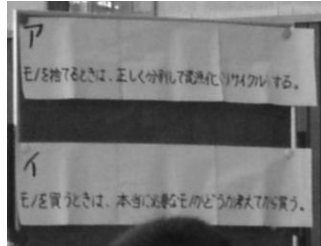 ア
モノを捨てるときは、正しく分別して資源化(リサイクル)する。
イ
モノを買うときは、本当に必要なモノかどうか考えてから買う。